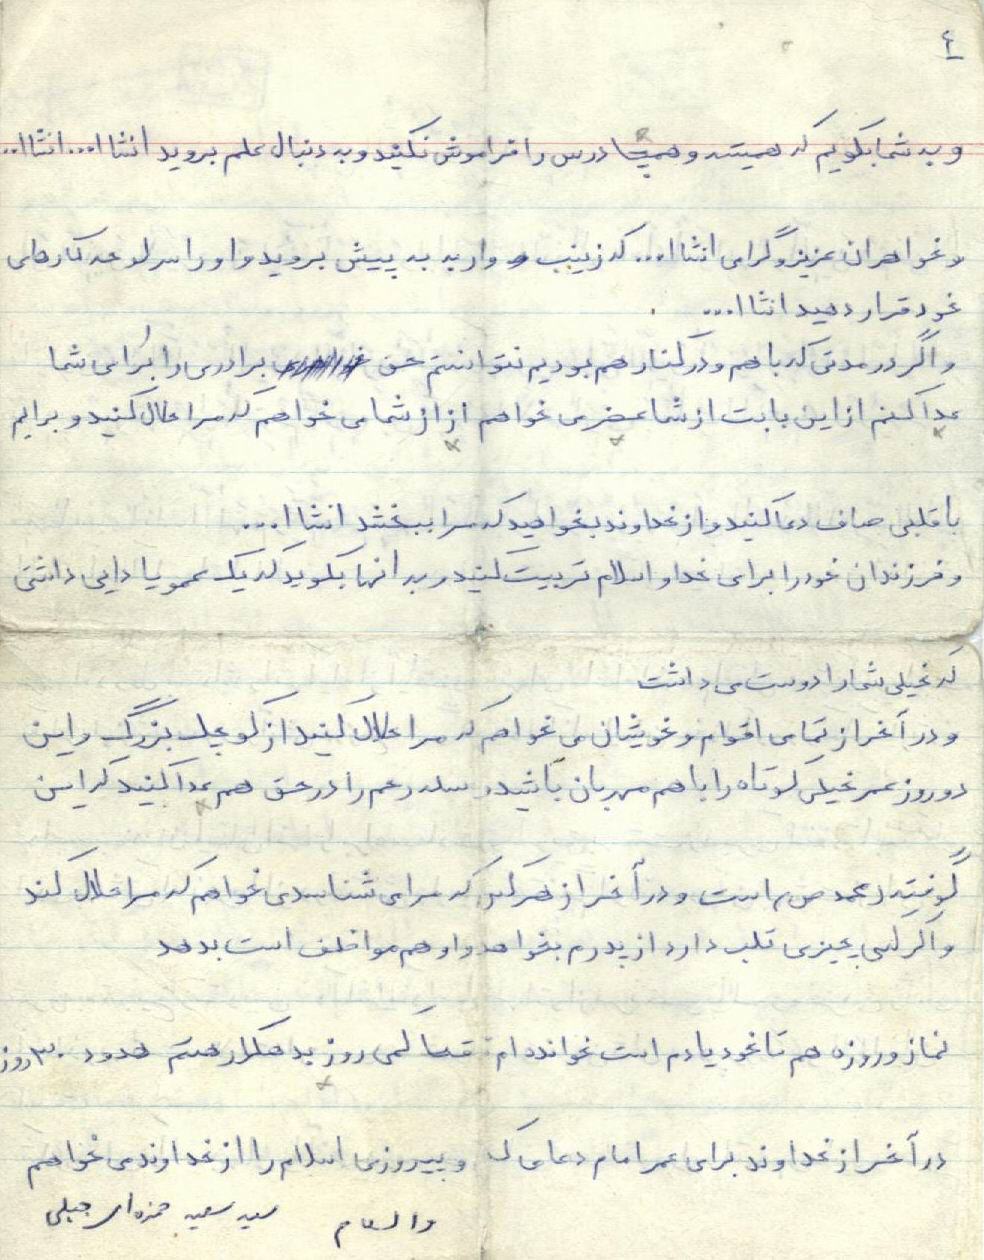 ٤
و به شما بگویم که همیشه و همیجا درس را فراموش نکنید و به دنبال علم بروید انشاا... انشاا...
و خواهران عزیز و گرامی انشاا... که زینب وار به به پیش بروید و او را سرلوحه کارهای
خود قرار دهید انشاا...
و اگر در مدتی که با هم و در کنار هم بودیم نتوانستم حق برادری را برای شما
عدا کنم از این بابت از شما عضر می خواهم از از شما می خواهم که مرا حلال کنید و برایم
با قلبی صاف دعا کنید و از خداوند بخواهید که مرا ببخشد انشاا...
و فرزندان خود را برای خدا و اسلام تربیت کنید و به آنها بگوید که یک عمو یا دایی داشتی
که خیلی شما را دوست می داشت
و در آخر از تمامی اقوام و خویشان می خواهم که مرا حلال کنید از کوچک بزرگ و این
دو روز عمر خیلی کوتاه را با هم مهربان باشید و سله رحم را در حق هم عدا کنید که این
گوفته محمد ص است و در آخر از هر کس که مرا می شناسد می خواهم که مرا حلال کند
و اگر کسی چیزی تلب دارد از پدرم بخواهد و او هم موافلف است بدهد
نماز و روزه هم تا خود یادم است خوانده ام تنها کمی روز بدهکار هستم حدود ۳۰ روز
در آخر از خداوند برای عمر امام دعا می ک و پیروزی اسلام را از خداوند می خواهم
والسلام سید سعید حمزه ای جبلی